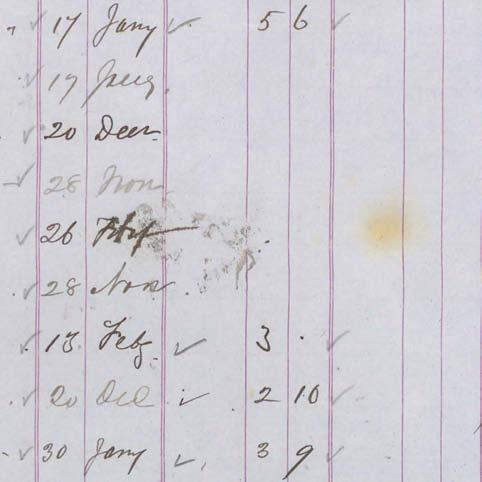 17 Jany ✓ 5 6 ✓
✓ 17 Jany
✓ 20 Decr
✓ 28 Nov
✓ 26
✓ 28 Nov
✓ 13 Feby ✓ 3 . ✓
✓ 20 Dec ✓ 2 10 ✓
30 Jany ✓ 3 9 ✓